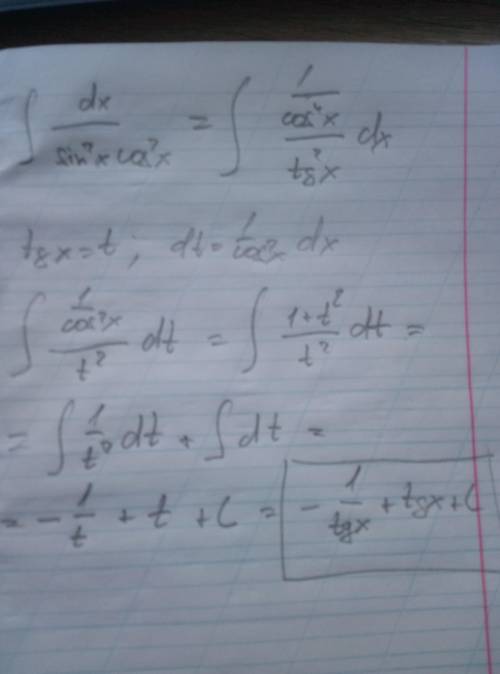 ∫ dx / (sin²x cos²x) = ∫ (1/cos⁴x) / (tg²x) dx
tgx = t; dt = 1/cos²x dx
∫ (1/cos²x) / t² dt = ∫ (1+t²)/t² dt =
= ∫ 1/t² dt + ∫ dt =
= - 1/t + t + C = - 1/tgx + tgx + C